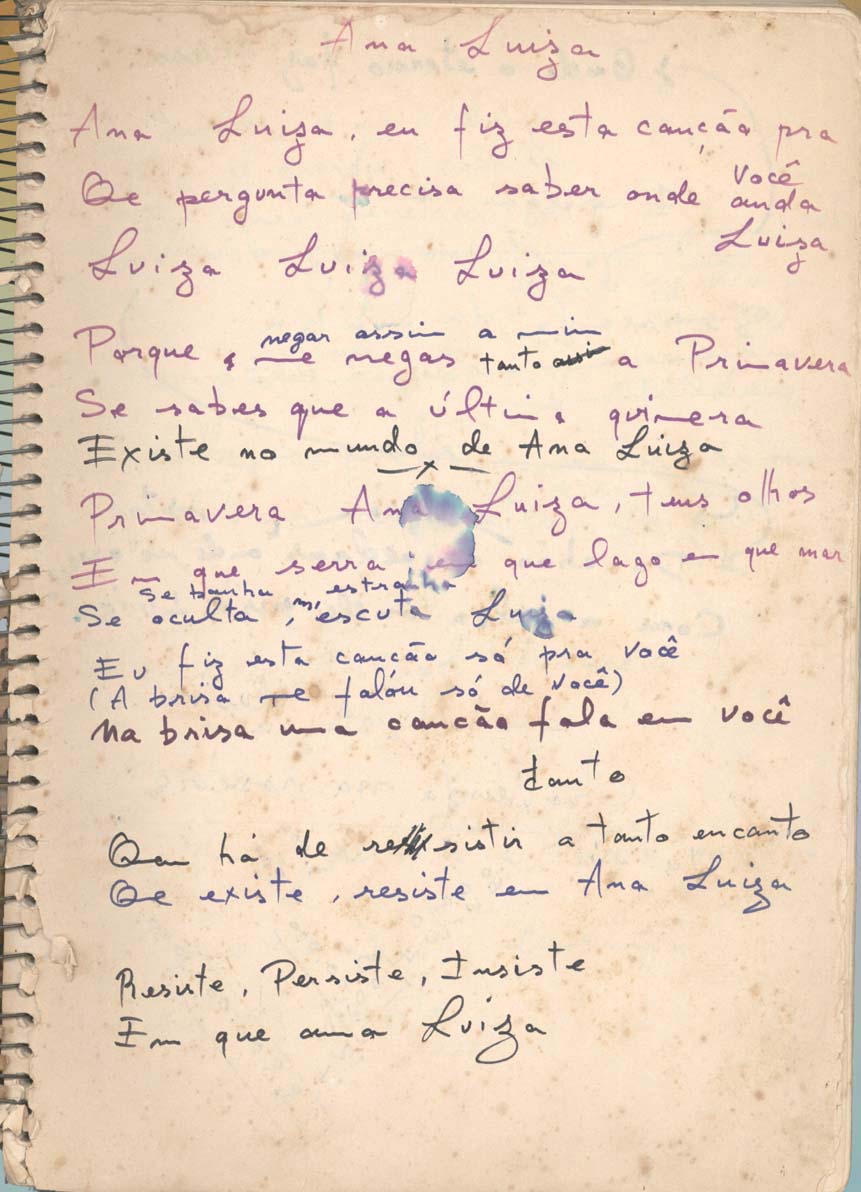 Ana Luiza
Ana Luiza, eu fiz esta canção pra
você
Qe pergunta precisa saber onde anda
Luiza
Luiza Luiza Luiza
negar assim a mim
Porque, me negas tanto a Primavera
Se sabes que a última quimera
Existe no mundo de Ana Luiza
— x —
Primavera Ana Luiza, teus olhos
Em que serra, em que lago em que mar
Se banha, estranha
Se oculta, escuta Luiza
Eu fiz esta canção só pra você
(A brisa me falou só de você)
Na brisa uma canção fala em você
tanto
Qem há de resistir a tanto encanto
Qe existe, resiste em Ana Luiza
Resiste, Persiste, Insiste
Em que ama Luiza